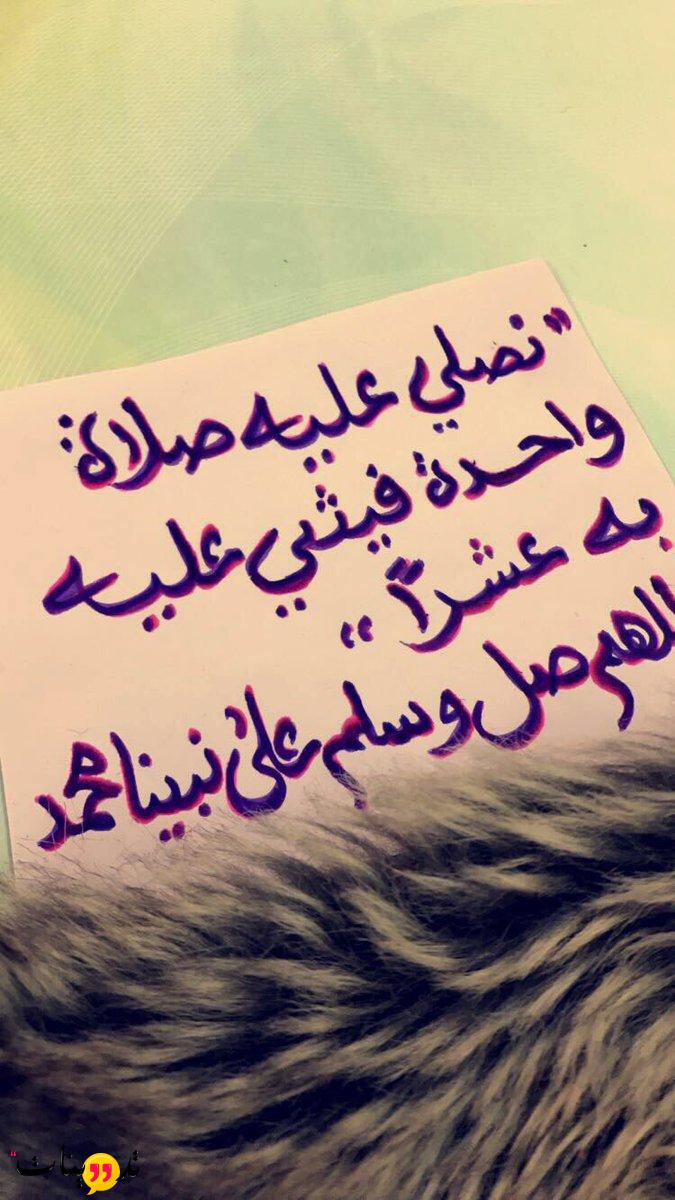 "نصلي عليه صلاة
واحدة فيثني عليه
به عشراً"
اللهم صل وسلم على نبينا محمد